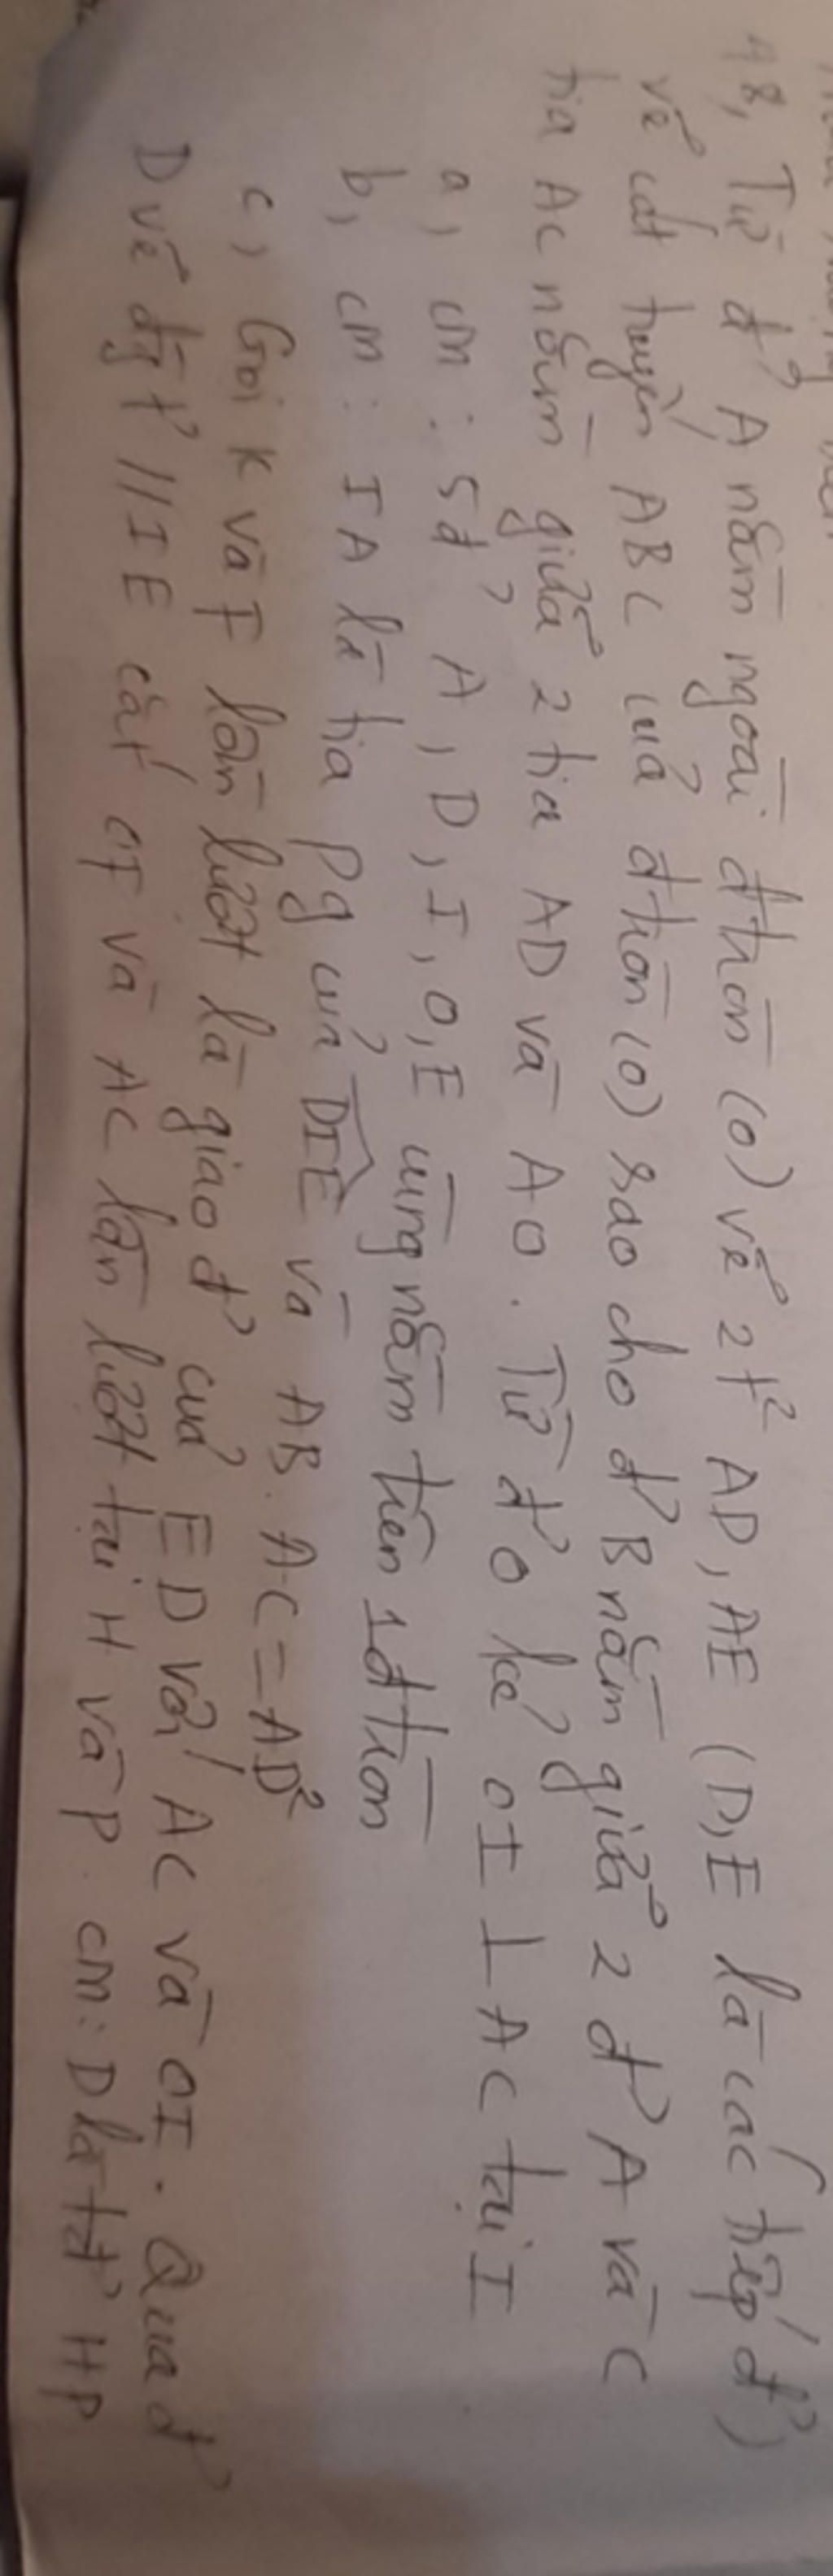 48, Từ đ' A nằm ngoài đtròn (O) vẽ 2 t² AD, AE (D,E là các tiếp đ')
vẽ cát tuyến ABC của đtròn (O) sao cho đ' B nằm giữa 2 đ' A và C
tia AC nằm giữa 2 tia AD và AO. Từ đ' O kẻ OI ⊥ AC tại I
a, cm: 5đ' A, D, I, O, E cùng nằm trên 1đtròn
b, cm: IA là tia pg của DIE và AB. AC = AD²
c, Gọi K và F lần lượt là giao đ' của ED với AC và OI. Qua đ'
D vẽ đgt' // IE cắt OF và AC lần lượt tại H và P. cm: D là tđ' HP